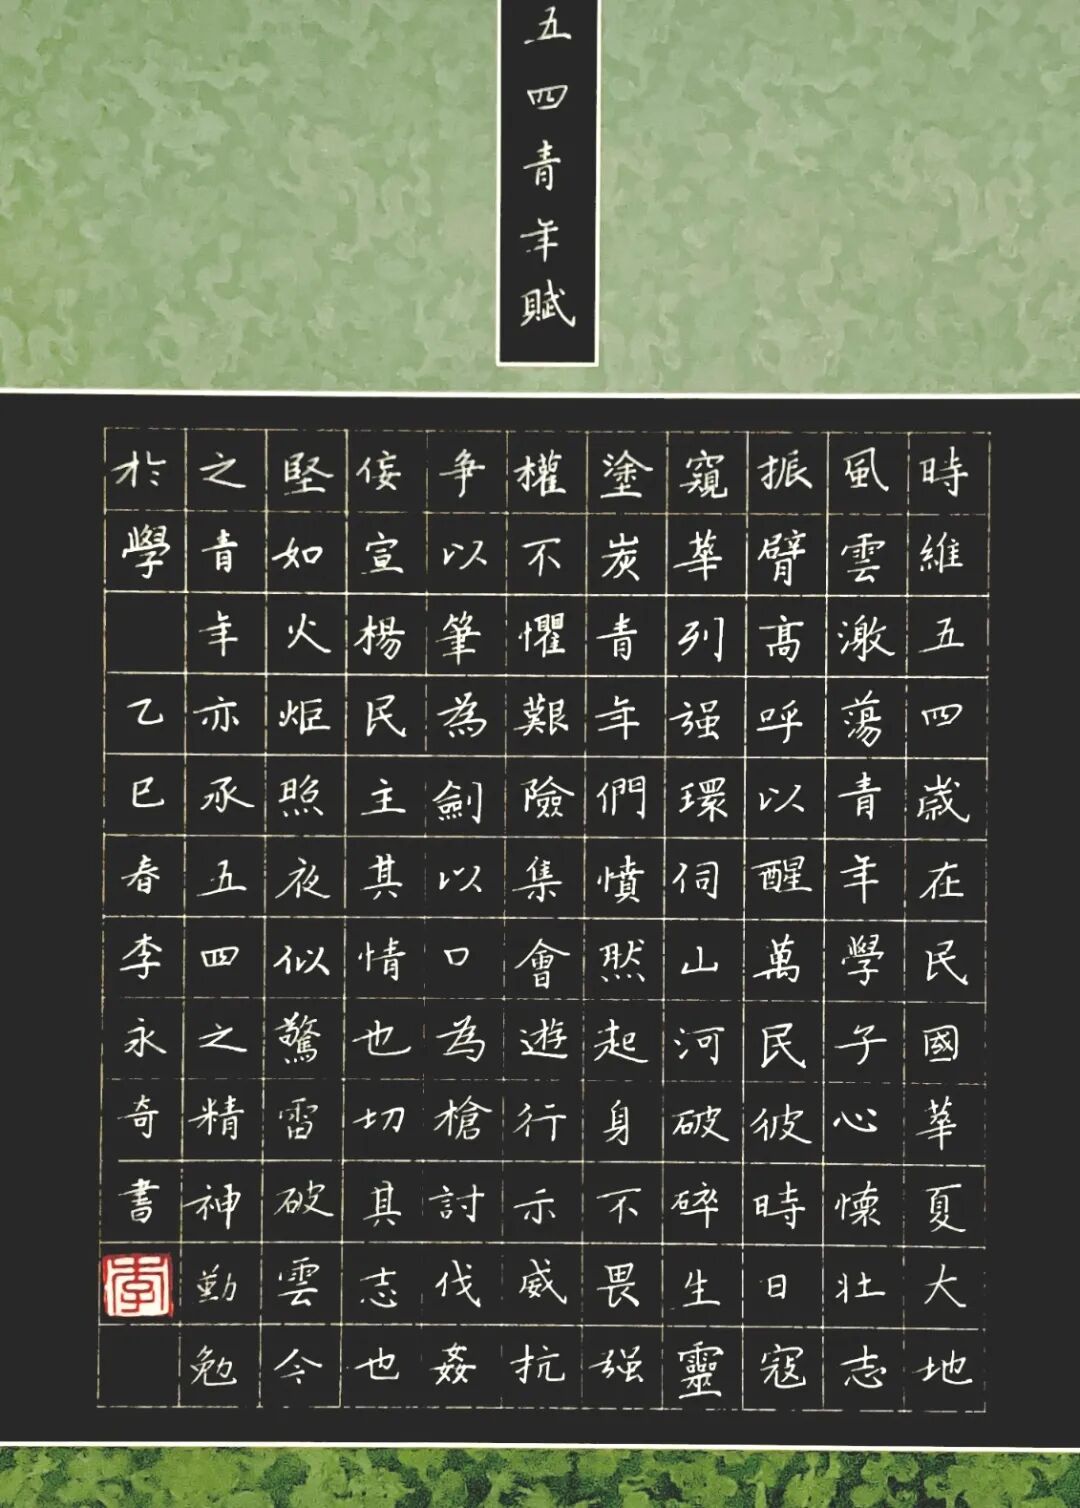 五四青年賦
時維五四歲在民國華夏大地
風雲激蕩青年學子心懷壯志
振臂髙呼以醒萬民彼時日寇
窺華列强環伺山河破碎生靈
塗炭青年們憤然起身不畏强
權不懼艱險集會遊行示威抗
爭以筆為劍以口為槍討伐姦
佞宣楊民主其情也切其志也
堅如火炬照夜似驚雷破雲今
之青年亦承五四之精神勤勉
於學 乙巳春李永奇書
李